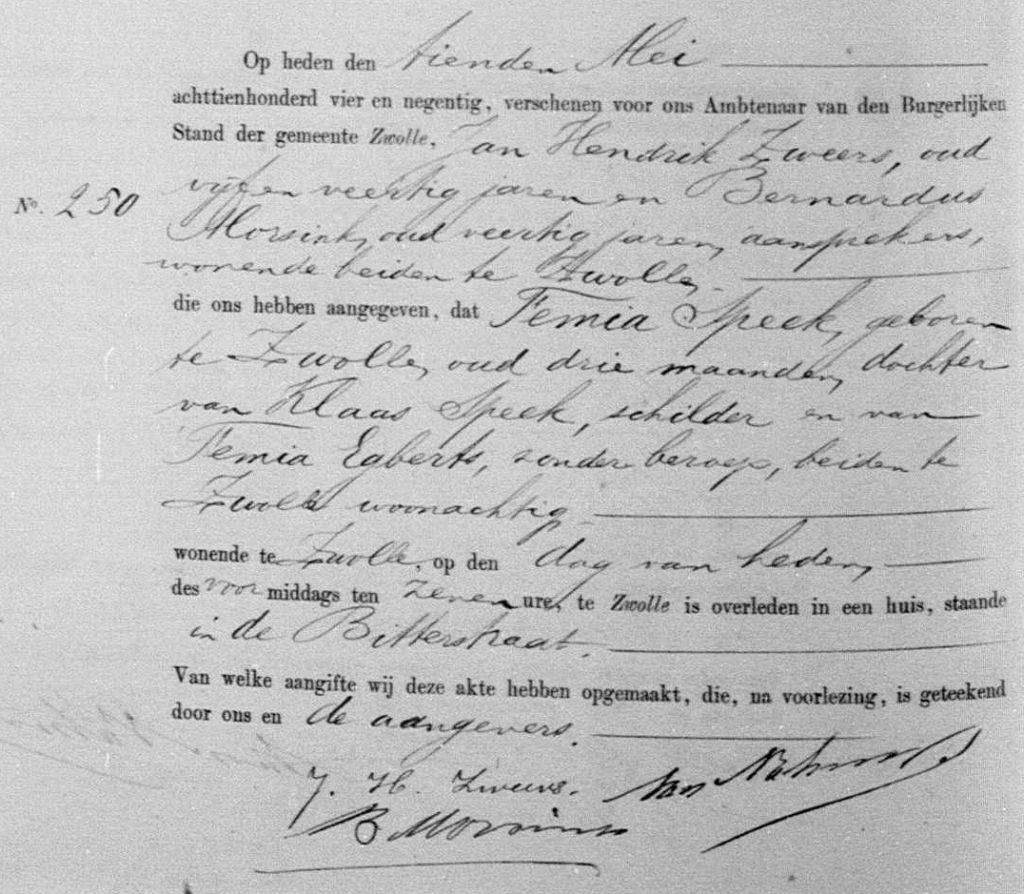 Op heden den tienden Mei
achttienhonderd vier en negentig, verschenen voor ons Ambtenaar van den Burgerlijken
Stand der gemeente Zwolle, Jan Hendrik Zweers, oud
No. 250 vijf en veertig jaren en Bernardus
Morsink, oud veertig jaren, aansprekers,
wonende beiden te Zwolle,
die ons hebben aangegeven, dat Femia Speek, geboren
te Zwolle, oud drie maanden, dochter
van Klaas Speek, schilder en van
Femia Egberts, zonder beroep, beiden te
Zwolle woonachtig
wonende te Zwolle, op den dag van heden,
des voor middags ten zeven ure, te Zwolle is overleden in een huis, staande
in de Bitterstraat.
Van welke aangifte wij deze akte hebben opgemaakt, die, na voorlezing, is geteekend
door ons en de aangevers.
J. H. Zweers.
B Morsink